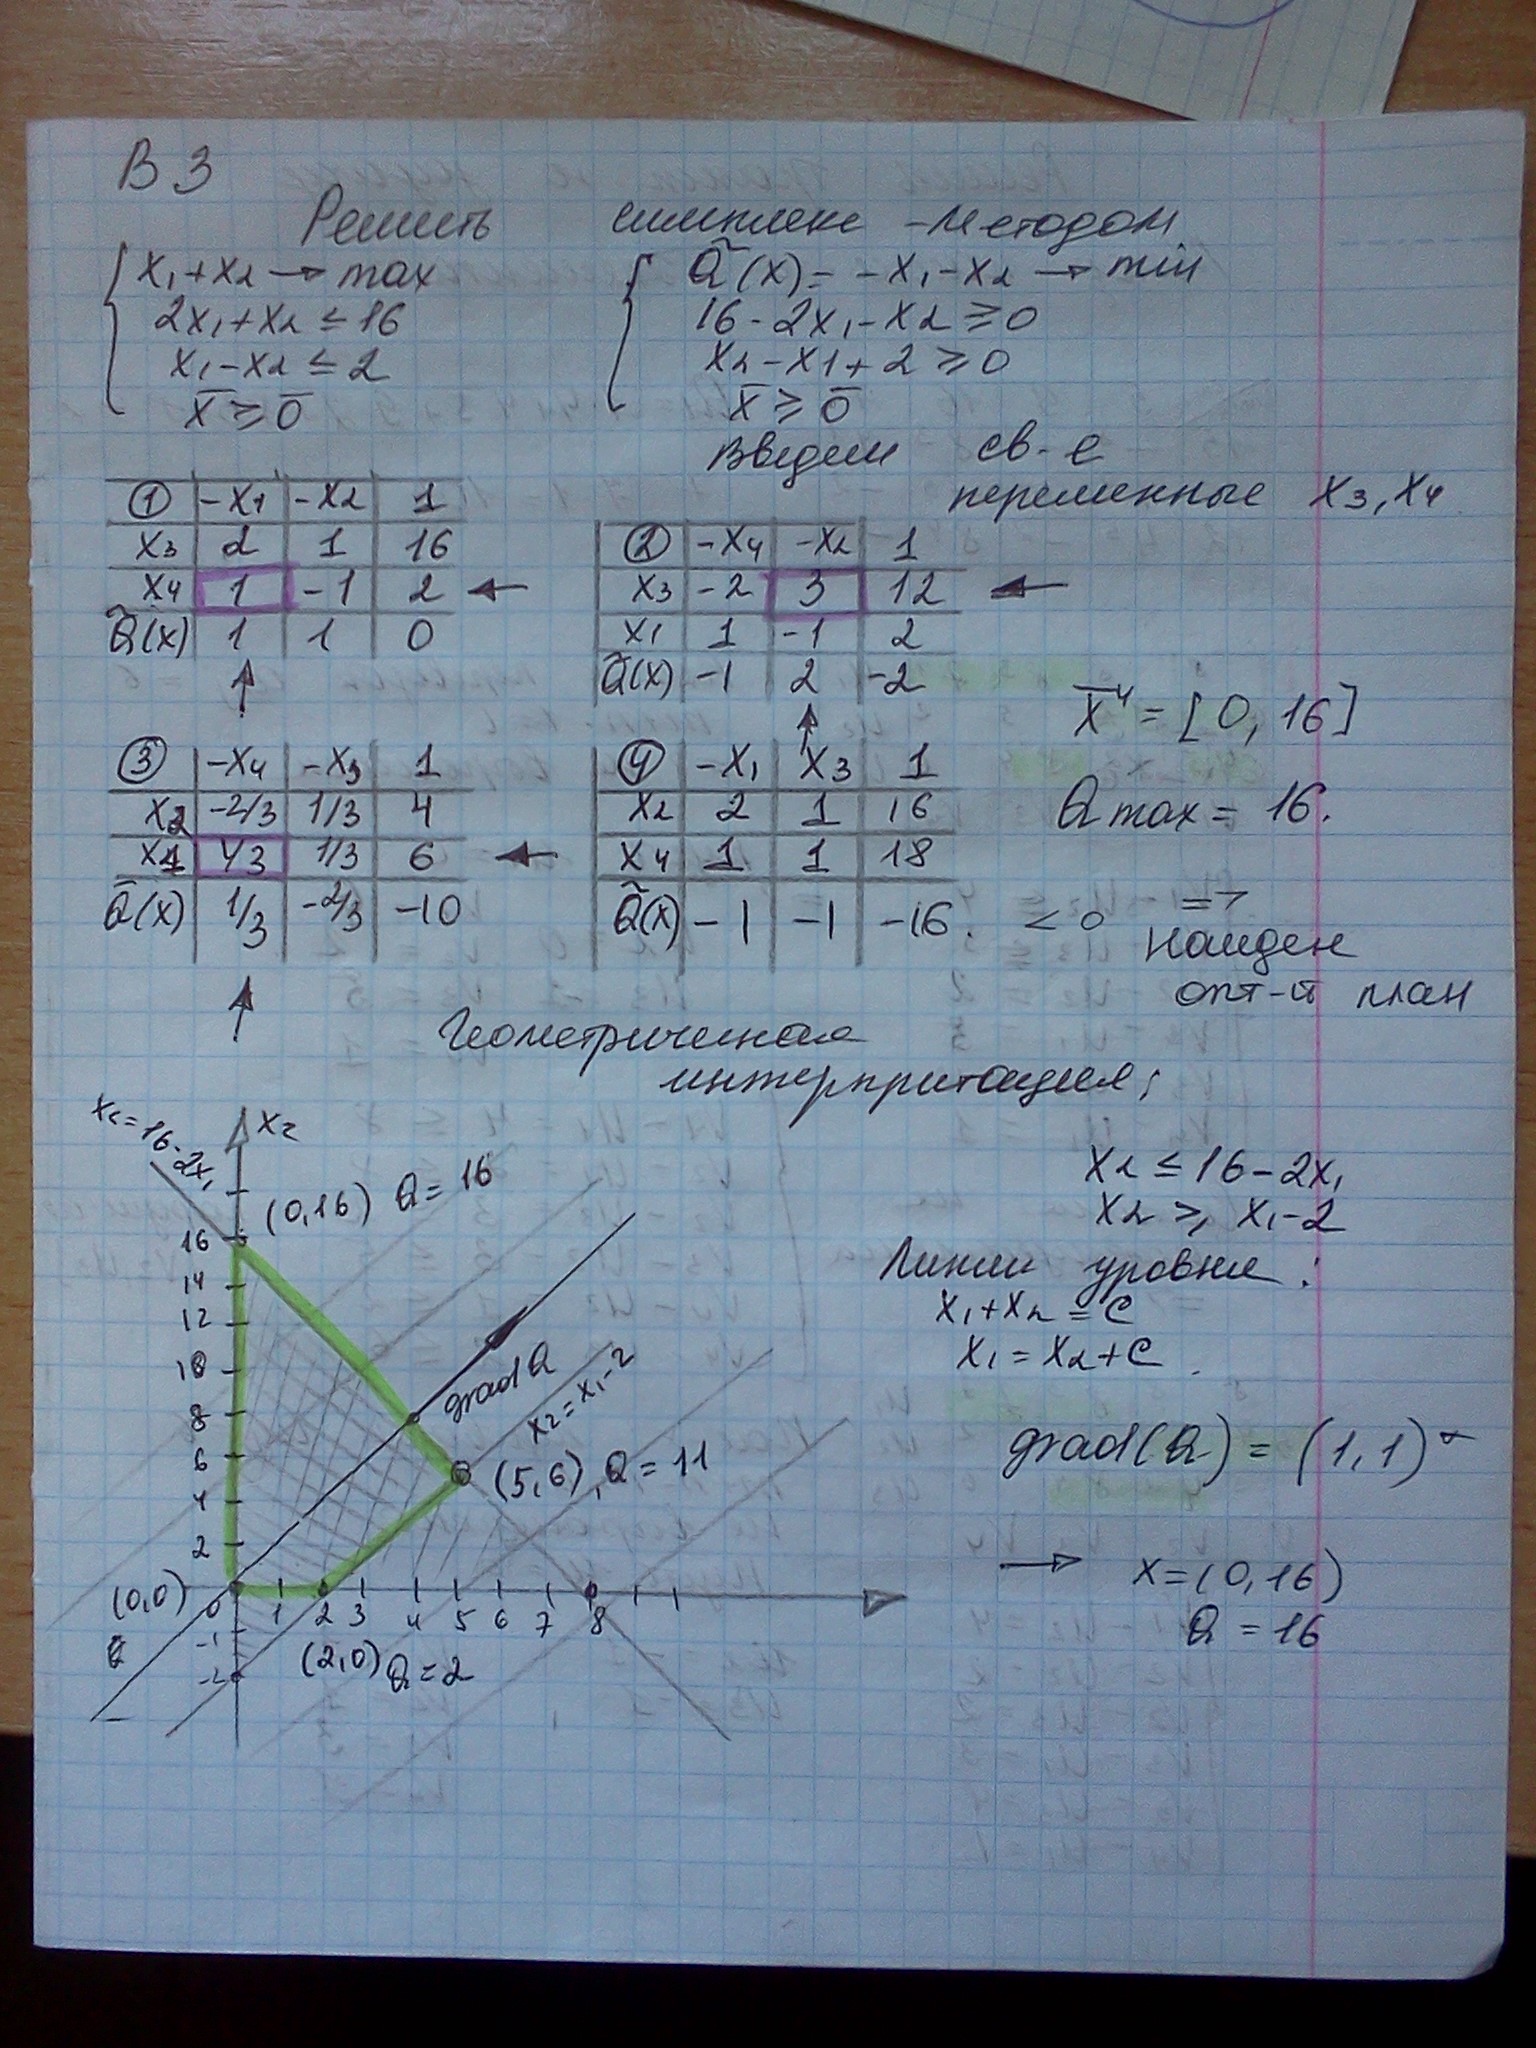 В 3
Решить симплекс-методом
x₁ + x₂ → max
2x₁ + x₂ ≤ 16
x₁ - x₂ ≤ 2
x̄ ≥ 0̄
Q̃(x) = -x₁ - x₂ → min
16 - 2x₁ - x₂ ≥ 0
x₂ - x1 + 2 ≥ 0
x̄ ≥ 0̄
Введем св-е
переменные x₃, x₄
① -x₁ -x₂ 1
x₃ 2 1 16
x₄ 1 -1 2 ←
Q̃(x) 1 1 0
↑
② -x₄ -x₂ 1
x₃ -2 3 12 ←
x₁ 1 -1 2
Q̃(x) -1 2 -2
↑
③ -x₄ -x₃ 1
x₂ -2/3 1/3 4
x1 1/3 1/3 6 ←
Q̃(x) 1/3 -2/3 -10
↑
④ -x₁ x₃ 1
x₂ 2 1 16
x₄ 1 1 18
Q̃(x) -1 -1 -16. < 0 =>
найден
опт-й план
x̄⁴ = [0, 16]
Q max = 16.
Геометрическая
интерпритация;
x₂ = 16-2x₁
x₂
(0,16) Q = 16
16
14
12
10
8
6
4
2
grad Q
x₂ = x₁-2
(5,6), Q = 11
(0,0)
0 1 2 3 4 5 6 7 8
-1
-2
(2,0) Q = 2
x₂ ≤ 16 - 2x₁
x₂ ≥ x₁ - 2
Линии уровня:
x₁ + x₂ = c
x₁ = x₂ + c
grad(Q) = (1,1)ᵀ
→ x = (0,16)
Q = 16